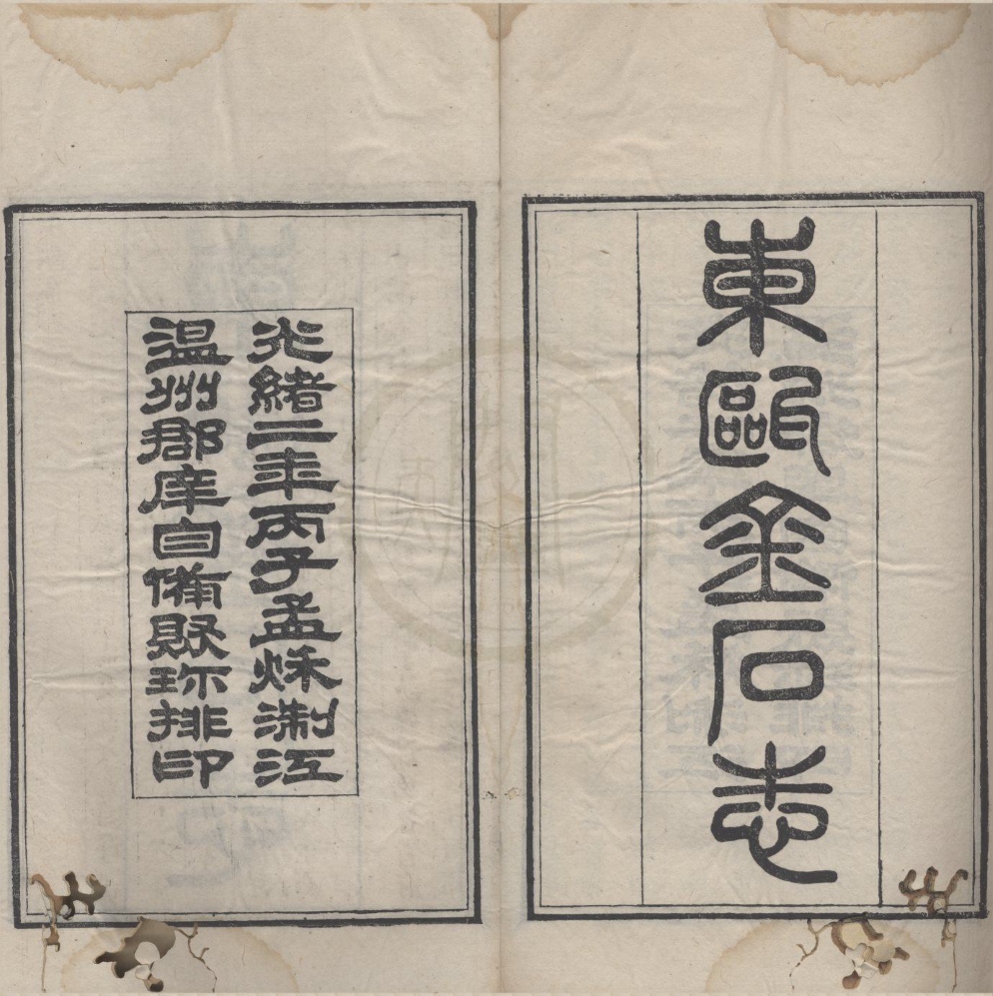 東甌金石志
光緒二年丙子孟秌淛江
温州郡庠自備聚珍排印